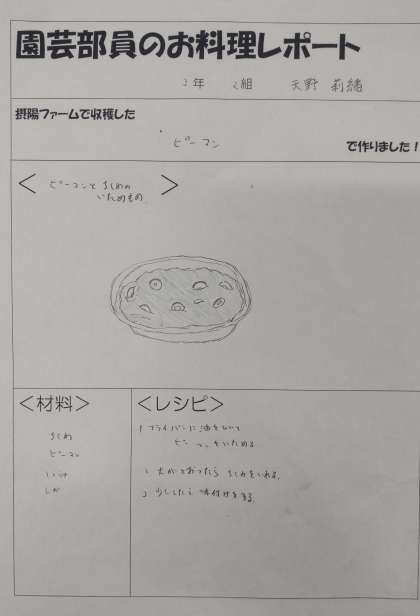 園芸部員のお料理レポート
3年 2組 天野 莉緒
摂陽ファームで収穫した
ピーマン
で作りました!
<ピーマンとちくわの
いためもの>
<材料>
ちくわ
ピーマン
<レシピ>
1 フライパンに油をひいて
ピーマンをいためる
2 火がとおったらちくわをいれる。
3 少ししたら味付けをする。